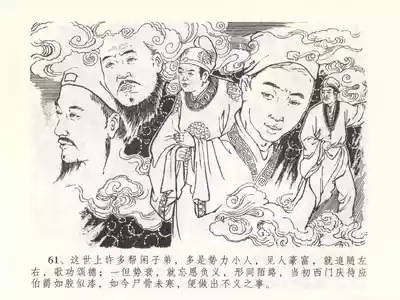 61、这世上许多帮闲子弟，多是势力小人，见人豪富，就追随左
右，歌功颂德；一但势衰，就忘恩负义，形同陌路，当初西门庆待应
伯爵如胶似漆，如今尸骨未寒，便做出不义之事。